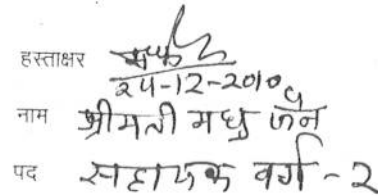 हस्ताक्षर
२५-12-2010
नाम श्रीमती मधु जैन
पद सहायक वर्ग - २